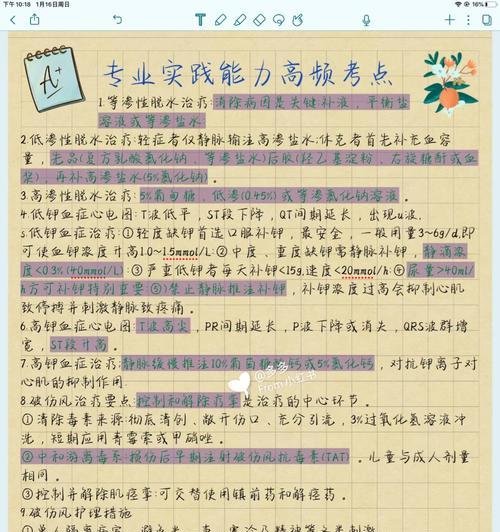 下午 10:18 1月16日周日
16%
A+
专业实践能力高频考点
1.等渗性脱水治疗:清除病因是关键补液,平衡盐
溶液或等渗盐水
2.低渗性脱水治疗:轻症者仅静脉输注高渗盐水:休克者首先补充血容
量,先晶(复方乳酸氯化钠、等渗盐水)后胶(羟乙基淀粉、右旋糖酐或血
浆),再补高渗盐水(5%氯化钠)。
3.高渗性脱水治疗:5%葡萄糖、低渗(0.45%)或等渗氯化钠溶液。
4.低钾血症心电图:T波低平,ST段下降,QT间期延长,出现u波。
5.低钾血症治疗:①轻度缺钾首选口服补钾,最安全,一般用量3~6g/d,即
可使血钾浓度升高1.0~1.5mmol/L:②中度、重度缺钾需静脉补钾,静滴浓
度<0.3%(40mmol/L):③严重低钾者每天补钾<15g,速度<20mmol/h:④尿量>40ml
/h方可补钾特别重要:⑤禁止静脉推注补钾,补钾浓度过高会抑制心肌
致停搏并刺激静脉致疼痛。
6.高钾血症心电图:T波高尖,PR间期延长,P波下降或消失,QRS波群增
宽,ST段升高。
7.高钾血症治疗:静脉缓慢推注10%葡萄糖酸钙或5%氯化钙,对抗钾离子对
心肌的抑制作用.
@多多
From小红书
8.破伤风治疗要点:控制和解除痉挛是治疗的中心环节.
①清除毒素来源:彻底清创、敞开伤口、充分引流,3%过氧化氢溶液冲
洗,短期应用青霉素或甲硝唑.
②中和游离毒素:损伤后早期注射破伤风抗毒素(TAT).儿童与成人剂量
相同.
③控制并解除肌痉挛:可交替使用镇前药和解痉药.
9.破伤风护理措施